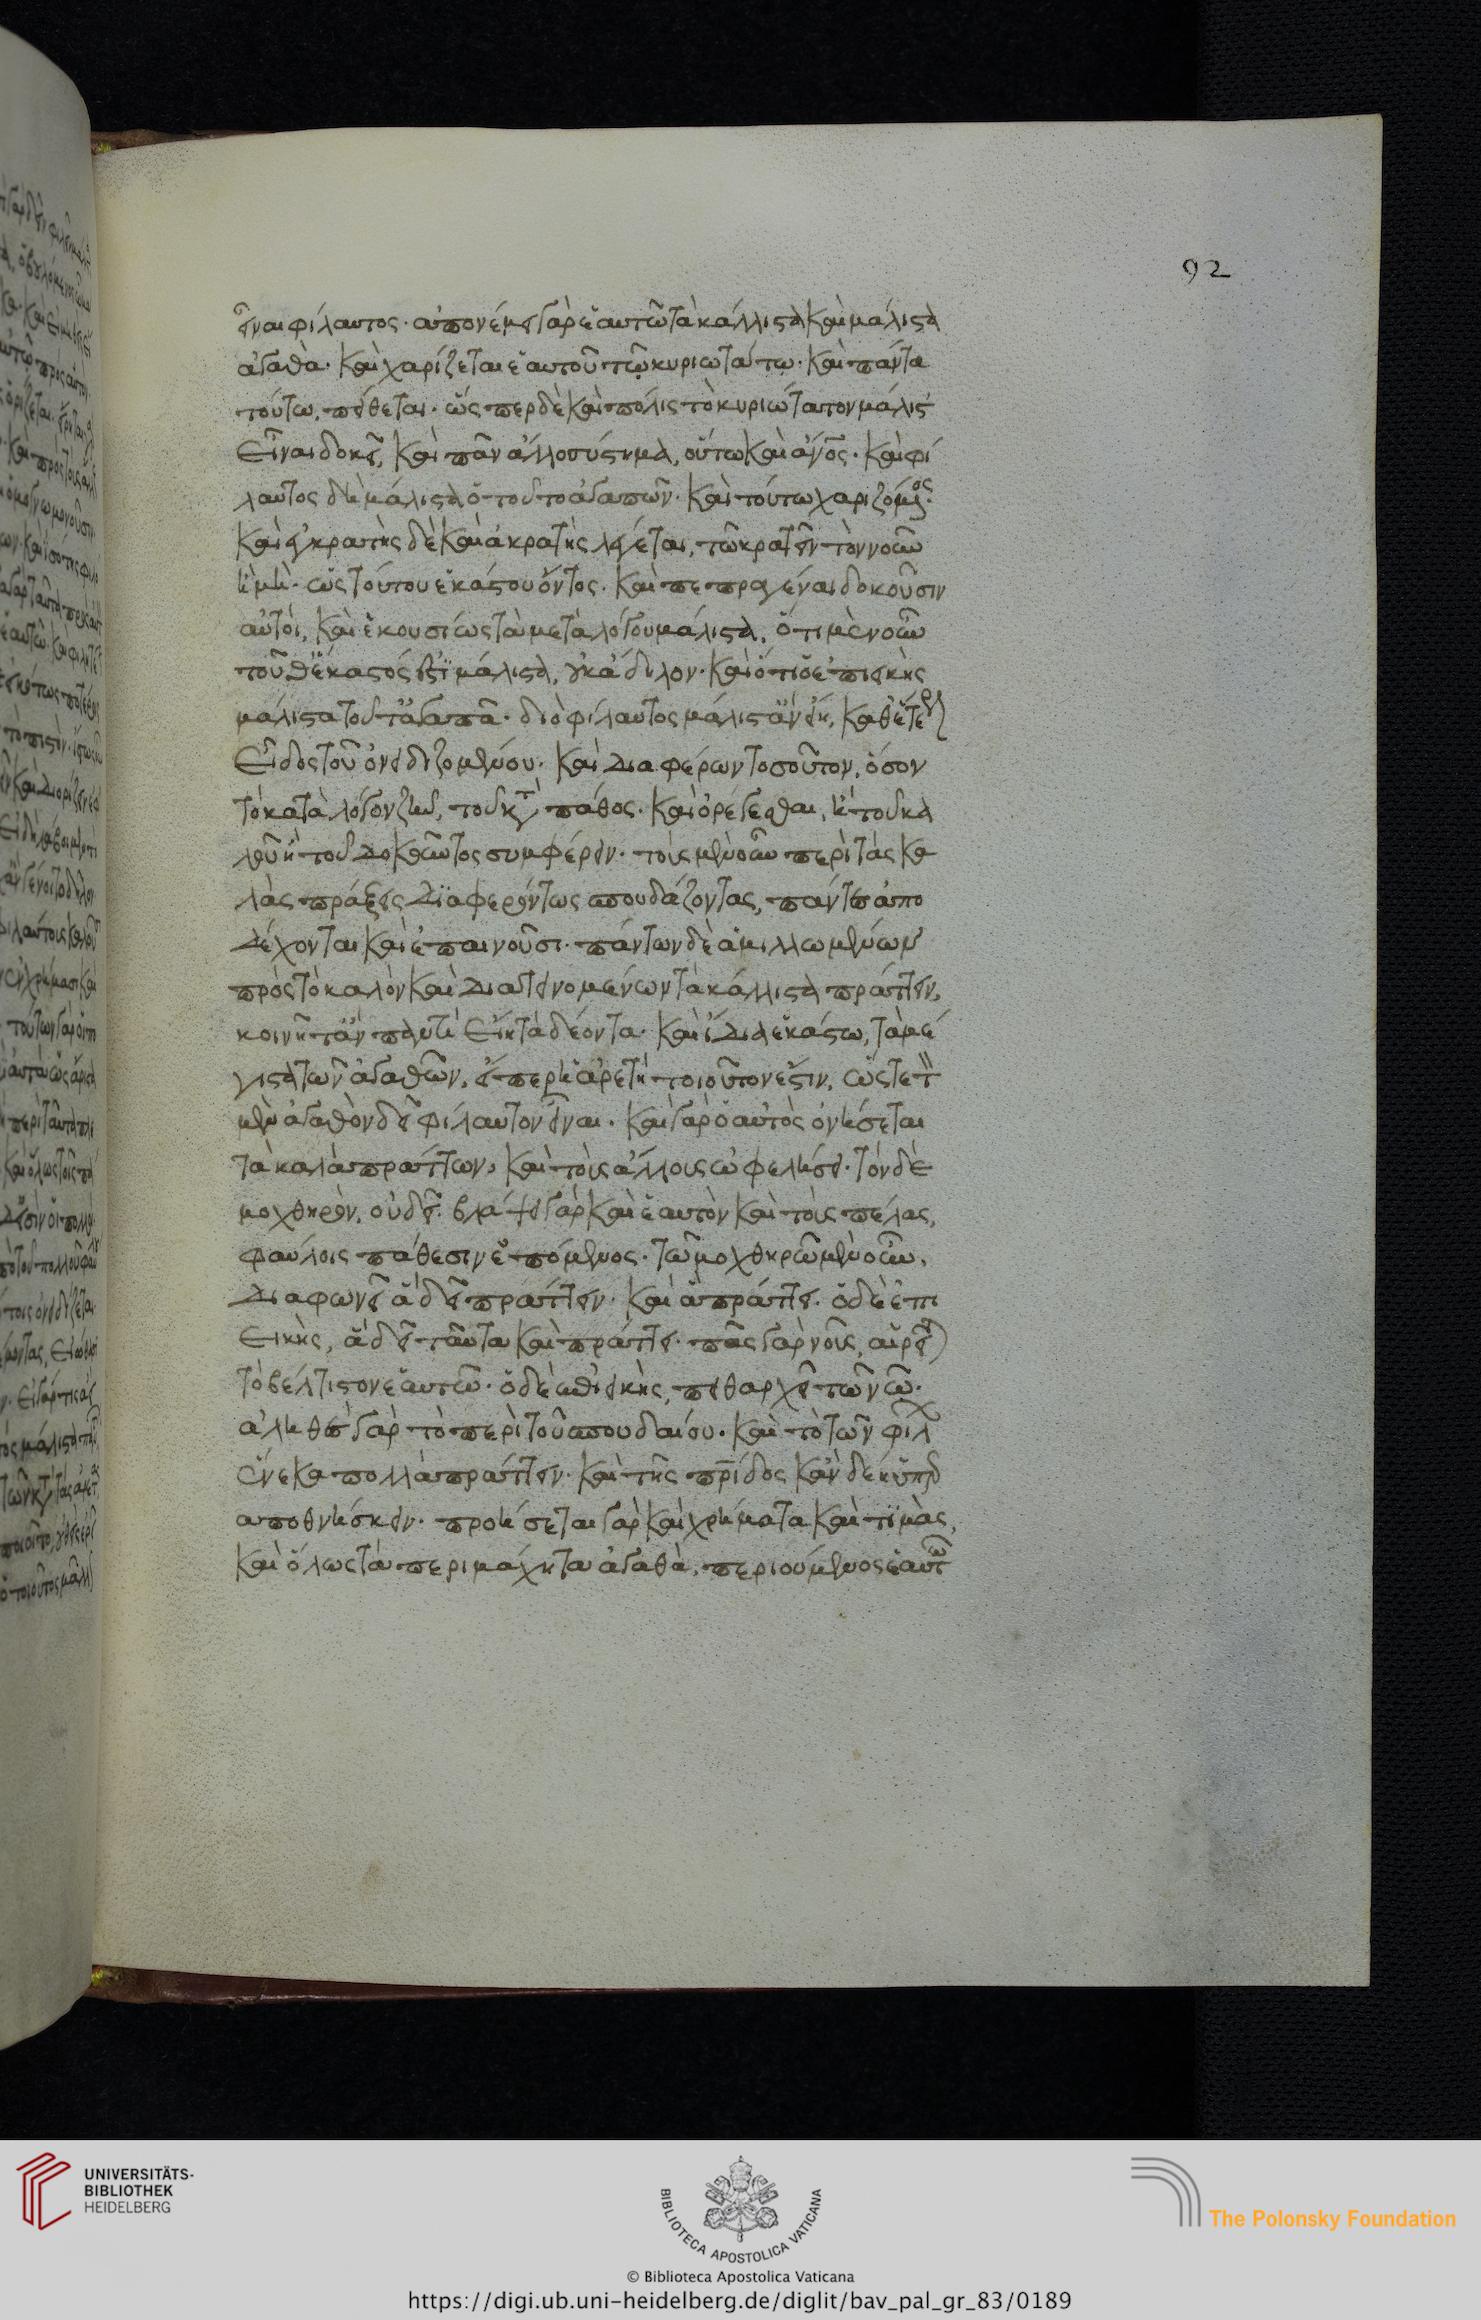 92
εἶναι φίλαυτος· ἀπονέμει γὰρ ἑαυτῶ τὰ κάλλιστα καὶ μάλιστα
ἀγαθὰ· καὶ χαρίζεται ἑαυτοῦ τῷ κυριωτάτω· καὶ πάντα
τούτω πείθεται· ὥσπερ δὲ καὶ πόλις τὸ κυριώτατον μάλιστ'
εἶναι δοκεῖ, καὶ πᾶν ἄλλο σύστημα, οὕτω καὶ ἄνος· καὶ φί
λαυτος δὴ μάλιστα ὁ τοῦτο ἀγαπῶν· καὶ τούτω χαριζόμενος·
καὶ ἐγκρατὴς δὲ καὶ ἀκρατὴς λέγεται, τῶ κρατεῖν τὸν νοῦν
ἢ μὴ· ὡς τούτου ἑκάστου ὄντος· καὶ πεπραγέναι δοκοῦσιν
αὐτοὶ, καὶ ἑκουσίως τὰ μετὰ λόγου μάλιστα, ὅτι μὲν οὖν
τοῦθ' ἕκαστός ἐστι μάλιστα, οὐκ ἄδηλον· καὶ ὅτι ὁ ἐπιεικὴς
μάλιστα τοῦτ' ἀγαπᾶ· διὸ φίλαυτος μάλιστ' ἂν εἴη, καθ' ἕτερον
εἶδος τοῦ ὀνειδιζομένου· καὶ διαφέρων τοσοῦτον, ὅσον
τὸ κατὰ λόγον ζῆν, τοῦ κατὰ πάθος· καὶ ὀρέγεσθαι, ἢ τοῦ κα
λοῦ ἢ τοῦ δοκοῦντος συμφέρειν· τοὺς μὲν οὖν περὶ τὰς κα
λὰς πράξεις διαφερόντως σπουδάζοντας, πάντες ἀπο
δέχονται καὶ ἐπαινοῦσι· πάντων δὲ ἁμιλλωμένων
πρὸς τὸ καλὸν καὶ διατεινομένων τὰ κάλλιστα πράττειν,
κοινῆ τ' ἂν πάντ' εἴη τὰ δέοντα· καὶ ἰδία ἑκάστω, τὰ μέ
γιστα τῶν ἀγαθῶν, εἴπερ ἡ ἀρετὴ τοιοῦτόν ἐστιν, ὥστε τὸν
μὲν ἀγαθὸν δεῖ φίλαυτον εἶναι· καὶ γὰρ ὁ αὐτὸς ὀνήσεται
τὰ καλὰ πράττων, καὶ τοὺς ἄλλους ὠφελήσει· τὸν δὲ
μοχθηρὸν, οὐ δεῖ· βλάψει γὰρ καὶ ἑαυτὸν καὶ τοὺς πέλας,
φαύλοις πάθεσιν ἑπόμενος· τῶ μοχθηρῶ μὲν οὖν,
διαφωνεῖ ἃ δεῖ πράττειν· καὶ ἃ πράττει· ὁ δὲ ἐπι
εικὴς, ἃ δεῖ ταῦτα καὶ πράττει· πᾶς γὰρ νοῦς αἱρεῖται
τὸ βέλτιστον ἑαυτῶ· ὁ δὲ ἐπιεικὴς, πειθαρχεῖ τῶ νῶ·
ἀληθὲς γὰρ τὸ περὶ τοῦ σπουδαίου· καὶ τὸ τῶν φίλων
ἕνεκα πολλὰ πράττειν· καὶ τῆς πρίδος κἂν δέη ὑπεραποθνήσκειν· προήσεται γὰρ καὶ χρήματα καὶ τιμὰς,
καὶ ὅλως τὰ περιμάχητα ἀγαθὰ, περιούμενος ἑαυτῶ
UNIVERSITÄTS-
BIBLIOTHEK
HEIDELBERG
BIBLIOTECA APOSTOLICA VATICANA
The Polonsky Foundation
© Biblioteca Apostolica Vaticana
https://digi.ub.uni-heidelberg.de/diglit/bav_pal_gr_83/0189